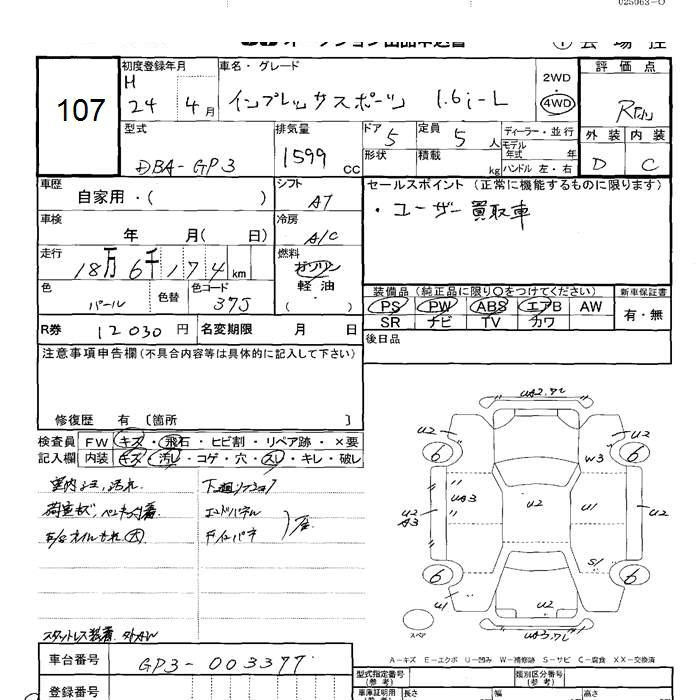 025063-0
オークション出品申込書
① 会場控
107
初度登録年月
H
24 4月
車名・グレード
インプレッサスポーツ 1.6i-L
2WD
・
4WD
評価点
外装 内装
D C
型式
DBA-GP3
排気量
1599 CC
ドア 5
定員 5 人
形状
積載 kg
ディーラー・並行
モデル年式 年
ハンドル 左・右
車歴
自家用・( )
シフト
AT
セールスポイント (正常に機能するものに限ります)
・ユーザー買取車
車検
年 月( 日)
冷房
A/C
走行
18万6千174 km
燃料
ガソリン
軽油
( )
色
パール
色替
色コード
37J
装備品 (純正品に限り○をつけてください)
PS PW ABS エアB AW
SR ナビ TV カワ
新車保証書
有・無
R券 12030 円
名変期限 月 日
後日品
注意事項申告欄 (不具合内容等は具体的に記入して下さい)
修復歴 有 〔箇所 〕
検査員
記入欄
FW キズ・飛石・ヒビ割・リペア跡・×要
内装 キズ・汚レ・コゲ・穴・スレ・キレ・破レ
室内キズ、汚れ
エンドパネル
スタットレス装着
UA2.ワレ
U2 U2
6 6
W3
U2 A3
UA3
U2
U1
U2
S1
6 6
U1
U2
UA3.ワレ
スペア
A-キズ E-エクボ U-凹み W-補修跡 S-サビ C-腐食 XX-交換済
車台番号
GP3-003377
登録番号
型式指定番号
(参考)
類別区分番号
(参考)
車庫証明用
(参考)
長さ
幅
高さ